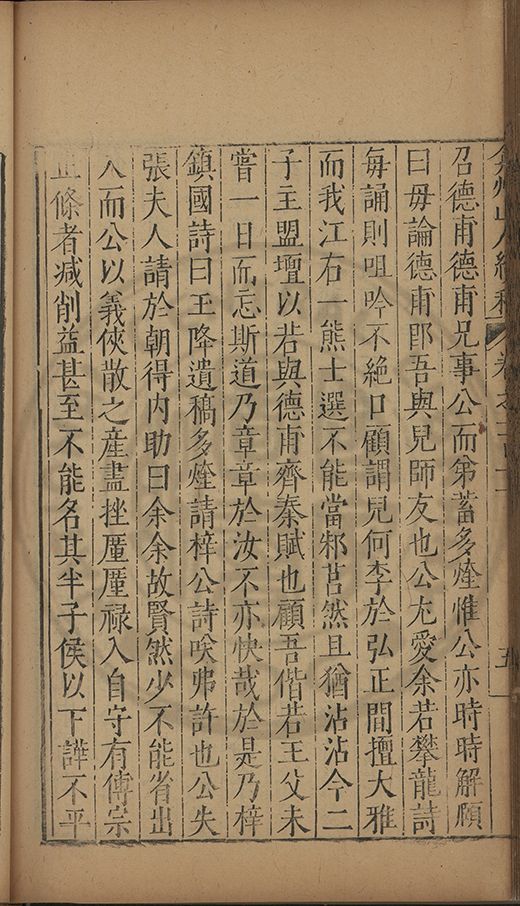 州山人續稿 卷之 五
召德甫德甫兄事公而弟蓄多煃惟公亦時時解頤
曰毋論德甫郎吾與兒師友也公尤愛余若攀龍詩
每誦則咀吟不絕口顧謂兒何李於弘正間擅大雅
而我江右一熊士選不能當邾莒然且猶沾沾今二
子主盟壇以若與德甫齊秦賦也顧吾偕若王父未
嘗一日而忘斯道乃章章於汝不亦快哉於是乃梓
鎮國詩曰王降遺稿多煃請梓公詩唉弗許也公失
張夫人請於朝得内助曰余余故賢然少不能省出
入而公以義俠散之產盡挫厪厪祿入自守有傅宗
正條者减削益甚至不能名其半子侯以下譁不平